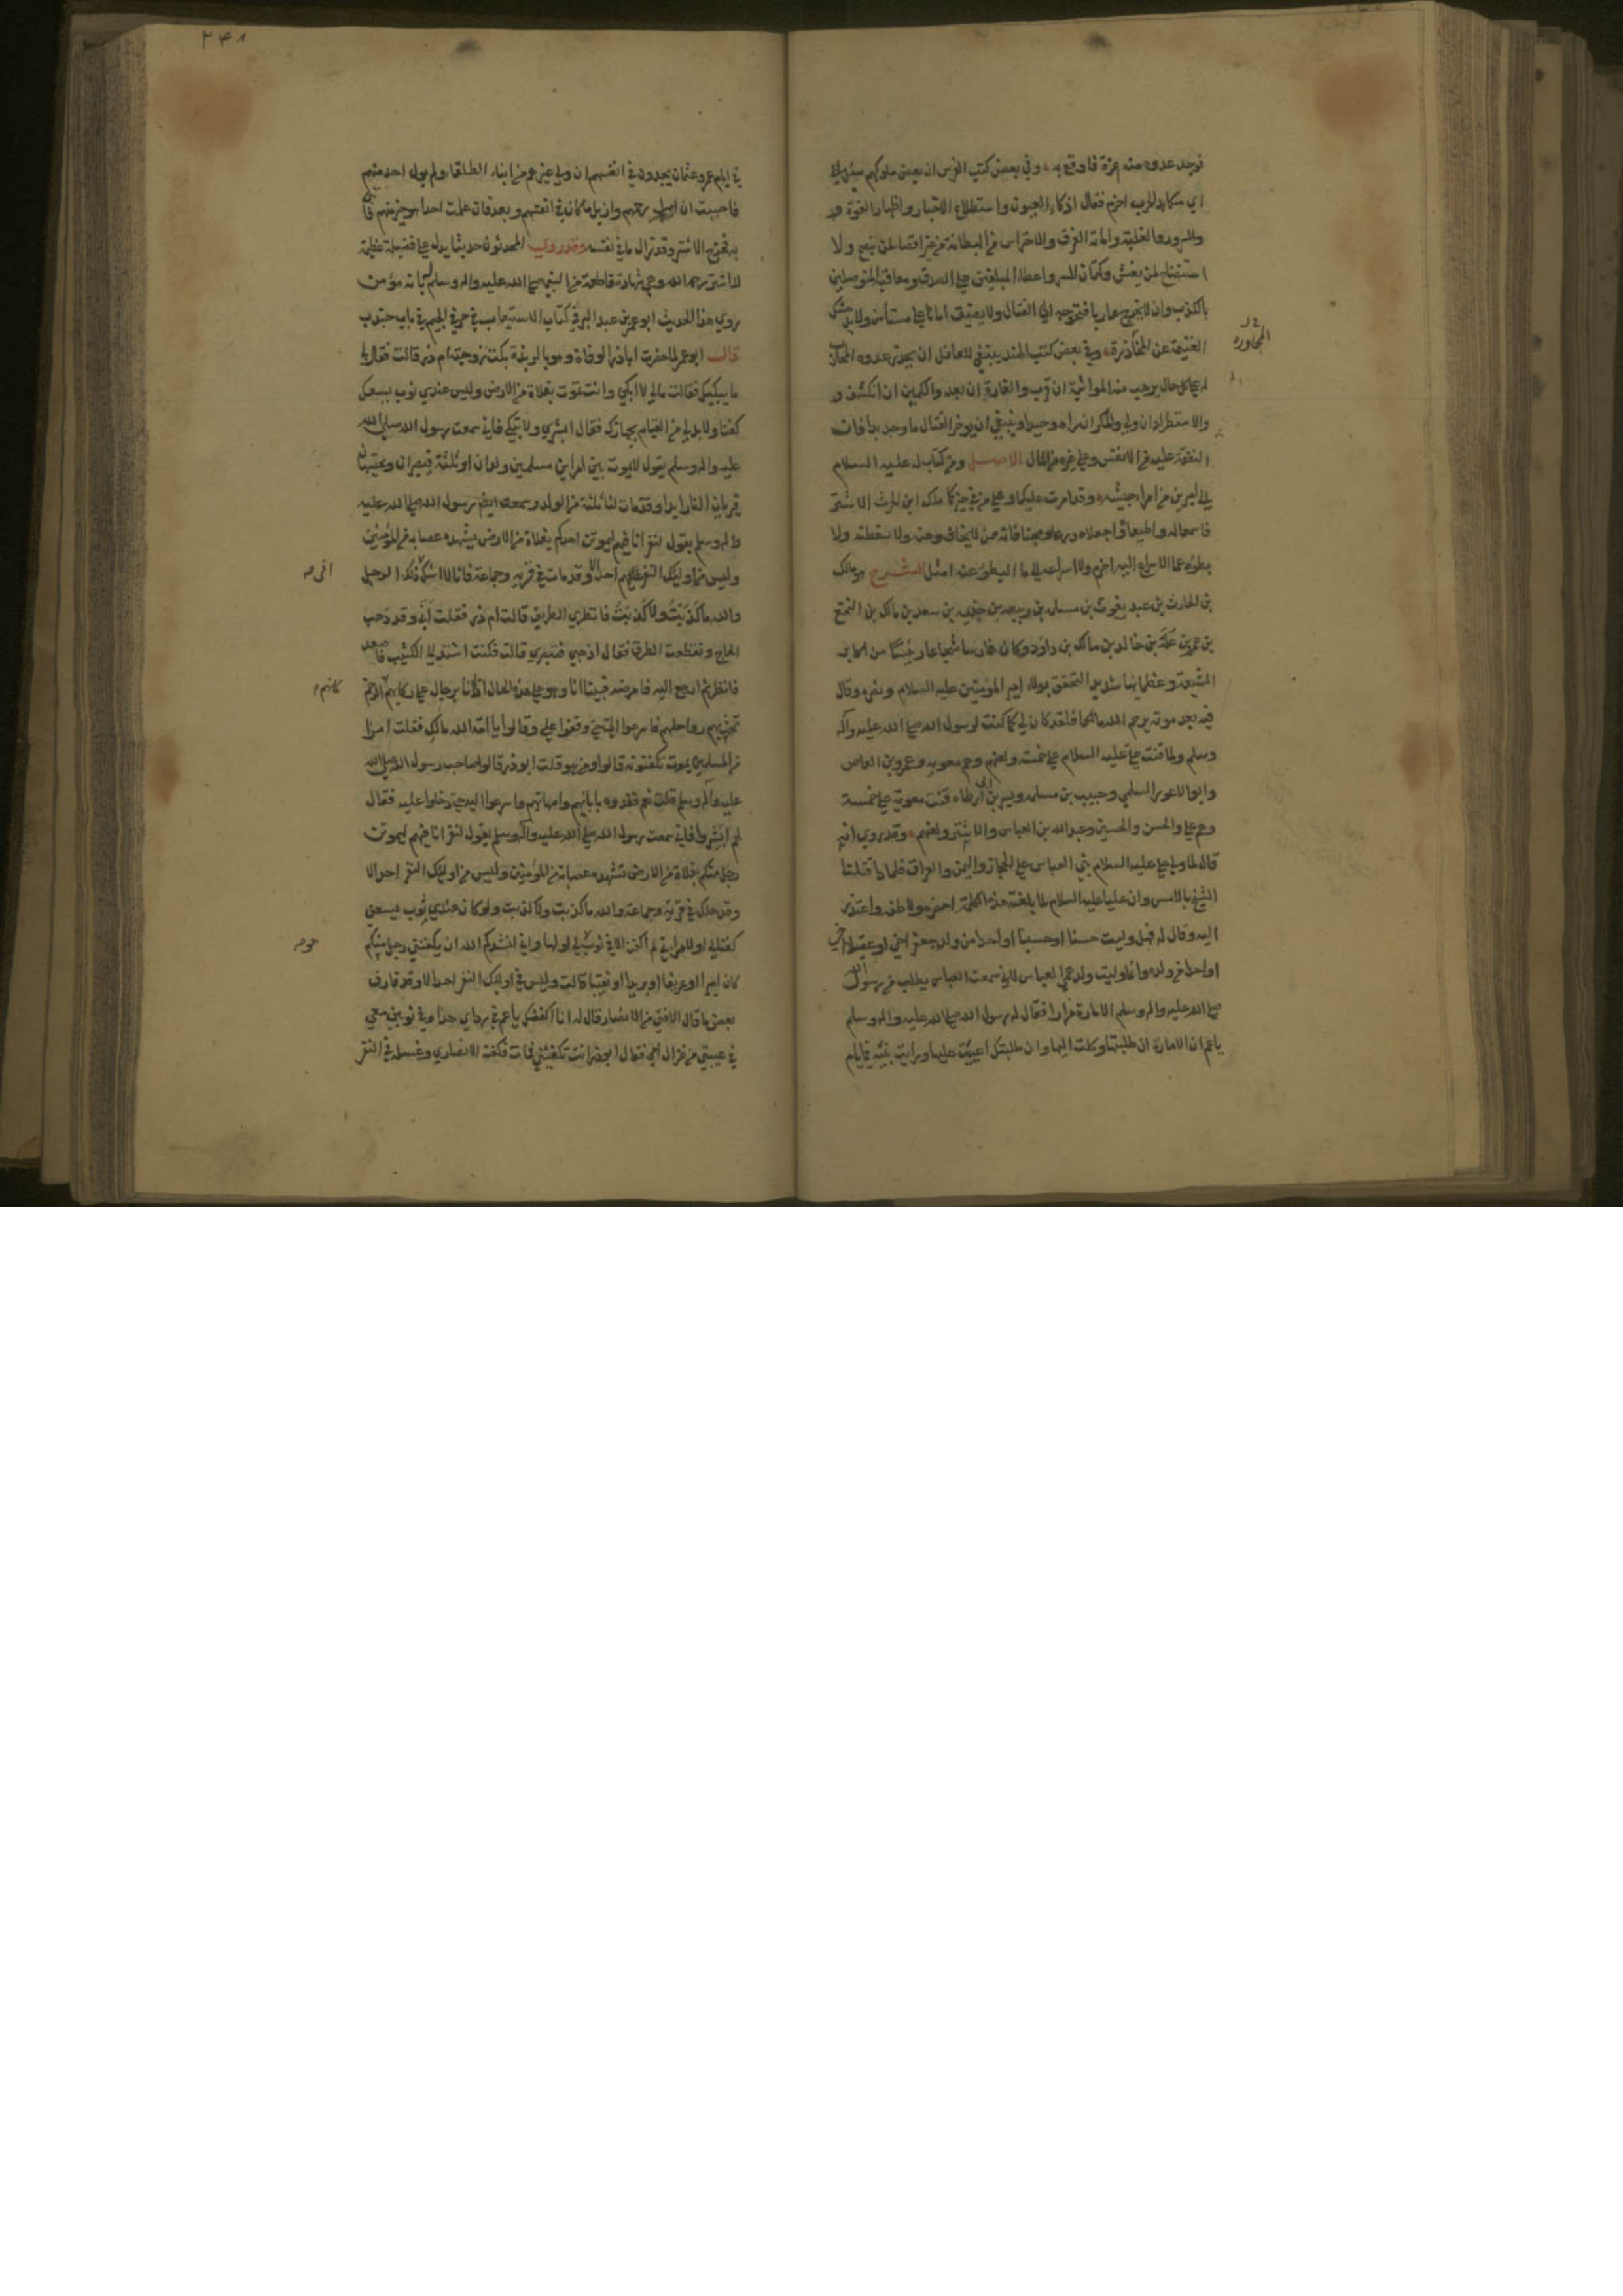 فوجد عدوه منه غرة فاوقع به وفي بعض كتب الفرس ان بعض ملوكهم سئل
اي مكايد الحرب احزم فقال اذكاء العيون واستطلاع الاخبار واظهار القوة
والسرور والغلبة واماتة الفرق والاحتراس من البطانة من غير اقصاء لمن ينصح ولا
استنصاح لمن يغش وكتمان للسر واعطاء المبلغين على الصدق ومعاقبة المتوصلين
بالكذب وان لا
الغنيمة عن المحاذرة وفي بعض كتب الهند ينبغي للعاقل ان يحذر عدوه المحاذر
له على كل حال يرهب منه المواثبة ان قرب والغارة ان بعد والكمين ان انكشف و
والاستطراد ان ولى والمكر ان رآه وحيدا وينبغي ان يوخر القتال ما وجد بدا فان
النفقة عليه من الانفس وعلى غيره من المال الاصل ومن كتاب له عليه السلام
الى اميرين من امراء جيشه وقد امرت عليكما وعلى من في حيزكما مالك ابن الحرث الاشتر
فاسمعا له واطيعا واجعلاه درعا ومجنا فانه ممن لا يخاف وهنه ولا سقطته ولا
بطؤه عما الاسراع اليه احزم ولا اسراعه الى ما البطؤ عنه امثل الشرح هو مالك
بن الحارث بن عبد يغوث بن مسلمة بن ربيعة بن خزيمة بن سعد بن مالك بن النخع
بن عمرو بن علة بن خالد بن مالك بن داود وكان فارسا شجاعا رئيسا من اكابر
الشيعة وعظمائها شديد التحقق بولاء امير المؤمنين عليه السلام ونصره وقال
فيه بعد موته يرحم الله مالكا فلقد كان لي كما كنت لرسول الله صلى الله عليه وآله
وسلم ولما قنت علي عليه السلام على خمسة ولعنهم وهم معوية وعمرو بن العاص
وابو الاعور السلمي وحبيب بن مسلمة وبسر بن ابي ارطاه قنت معوية على خمسة
وهم علي والحسن والحسين وعبد الله بن العباس والاشتر ولعنهم وقد روي انه
قال لما ولى علي عليه السلام بني العباس على الحجاز واليمن والعراق فلماذا قتلنا
الشيخ بالامس وان عليا عليه السلام لما بلغته هذه الكلمة احضره ولاطفه واعتذر
اليه وقال له فهل وليت حسنا او حسينا او احدا من ولد جعفر اخي او عقيلا اخي
او احدا من ولده وانما وليت ولد عمي العباس لاني سمعت العباس يطلب من رسول الله
صلى الله عليه واله وسلم الامارة مرارا فقال له رسول الله صلى الله عليه واله وسلم
يا عم ان الامارة ان طلبتها وكلت اليها وان طلبتك اعنت عليها ورايت بنيه في ايام
المحاوره
٢٤٨
في ايام عمر وعثمان يجدون في انفسهم ان ولى غيرهم من ابناء الطلقاء ولم يول احد منهم
فاحببت ان اصل رحمهم وازيل ما كان في انفسهم وبعد فان علمت احدا هو خير منهم فأتني
به فخرج الاشتر وقد زال ما في نفسه وقد روي المحدثون حديثا يدل على فضيلة عظيمة
للاشتر رحمه الله وهي شهادة قاطعة من النبي صلى الله عليه واله وسلم بانه مؤمن
روى هذا الحديث ابو عمر بن عبد البر في كتاب الاستيعاب في حرف الجيم في باب جندب
قال ابو عمر لما حضرت اباذر الوفاة وهو بالربذة بكت زوجته ام ذر قالت فقال لي
ما يبكيك فقالت مالي لا ابكي وانت تموت بفلاة من الارض وليس عندي ثوب يسعك
كفنا ولا بد لي من القيام بجهازك فقال ابشري ولا تبكي فاني سمعت رسول الله صلى الله
عليه واله وسلم يقول لا يموت بين امراين مسلمين ولدان او ثلثة فيصبران ويحتسبان
فيريان النار ابدا وقد مات لنا ثلثة من الولد وسمعت ايضا رسول الله صلى الله عليه
واله وسلم يقول لنفر انا فيهم ليموتن احدكم بفلاة من الارض يشهده عصابة من المؤمنين
وليس من اوليك النفر احد الا وقد مات في قرية وجماعة فانا لا اشك ذلك الرجل
والله ما كذبت ولا كذبت فانظري الطريق قالت ام ذر فقلت أنى وقد ذهب
الحاج وتقطعت الطرق فقال اذهبي فتبصري قالت فكنت اشتد الى الكثيب فاصعد
فانظر ثم ارجع اليه فامرضه فبينا انا وهو على هذه الحال اذ انا برجال على ركابهم كانهم الرخم
تخب بهم رواحلهم فاسرعوا الي حتى وقفوا علي وقالوا يا امة الله مالك فقلت امرا
من المسلمين يموت تكفنونه قالوا ومن هو قلت ابو ذر قالوا صاحب رسول الله صلى الله
عليه واله وسلم قلت نعم ففدوه بابائهم وامهاتهم واسرعوا اليه حتى دخلوا عليه فقال
لهم ابشروا فاني سمعت رسول الله صلى الله عليه وآله وسلم يقول لنفر انا فيهم ليموتن
رجل منكم بفلاة من الارض تشهده عصابة من المؤمنين وليس من اوليك النفر احد الا
وقد هلك في قرية وجماعة والله ما كذبت ولا كذبت ولو كان عندي ثوب يسعني
كفنا لي او لامراتي لم اكفن الا في ثوب لي او لها واني انشدكم الله ان يكفنني رجل منكم
كان اميرا او عريفا او بريدا او نقيبا قالت وليس في اوليك النفر احد الا وقد قارف
بعض ما قال الا فتى من الانصار قال له انا اكفنك يا عم في رداي هذا وفي ثوبين معي
في عيبتي من غزل امي فقال ابوذر انت تكفنني فمات فكفنه الانصاري وغسله في النفر
كانهم